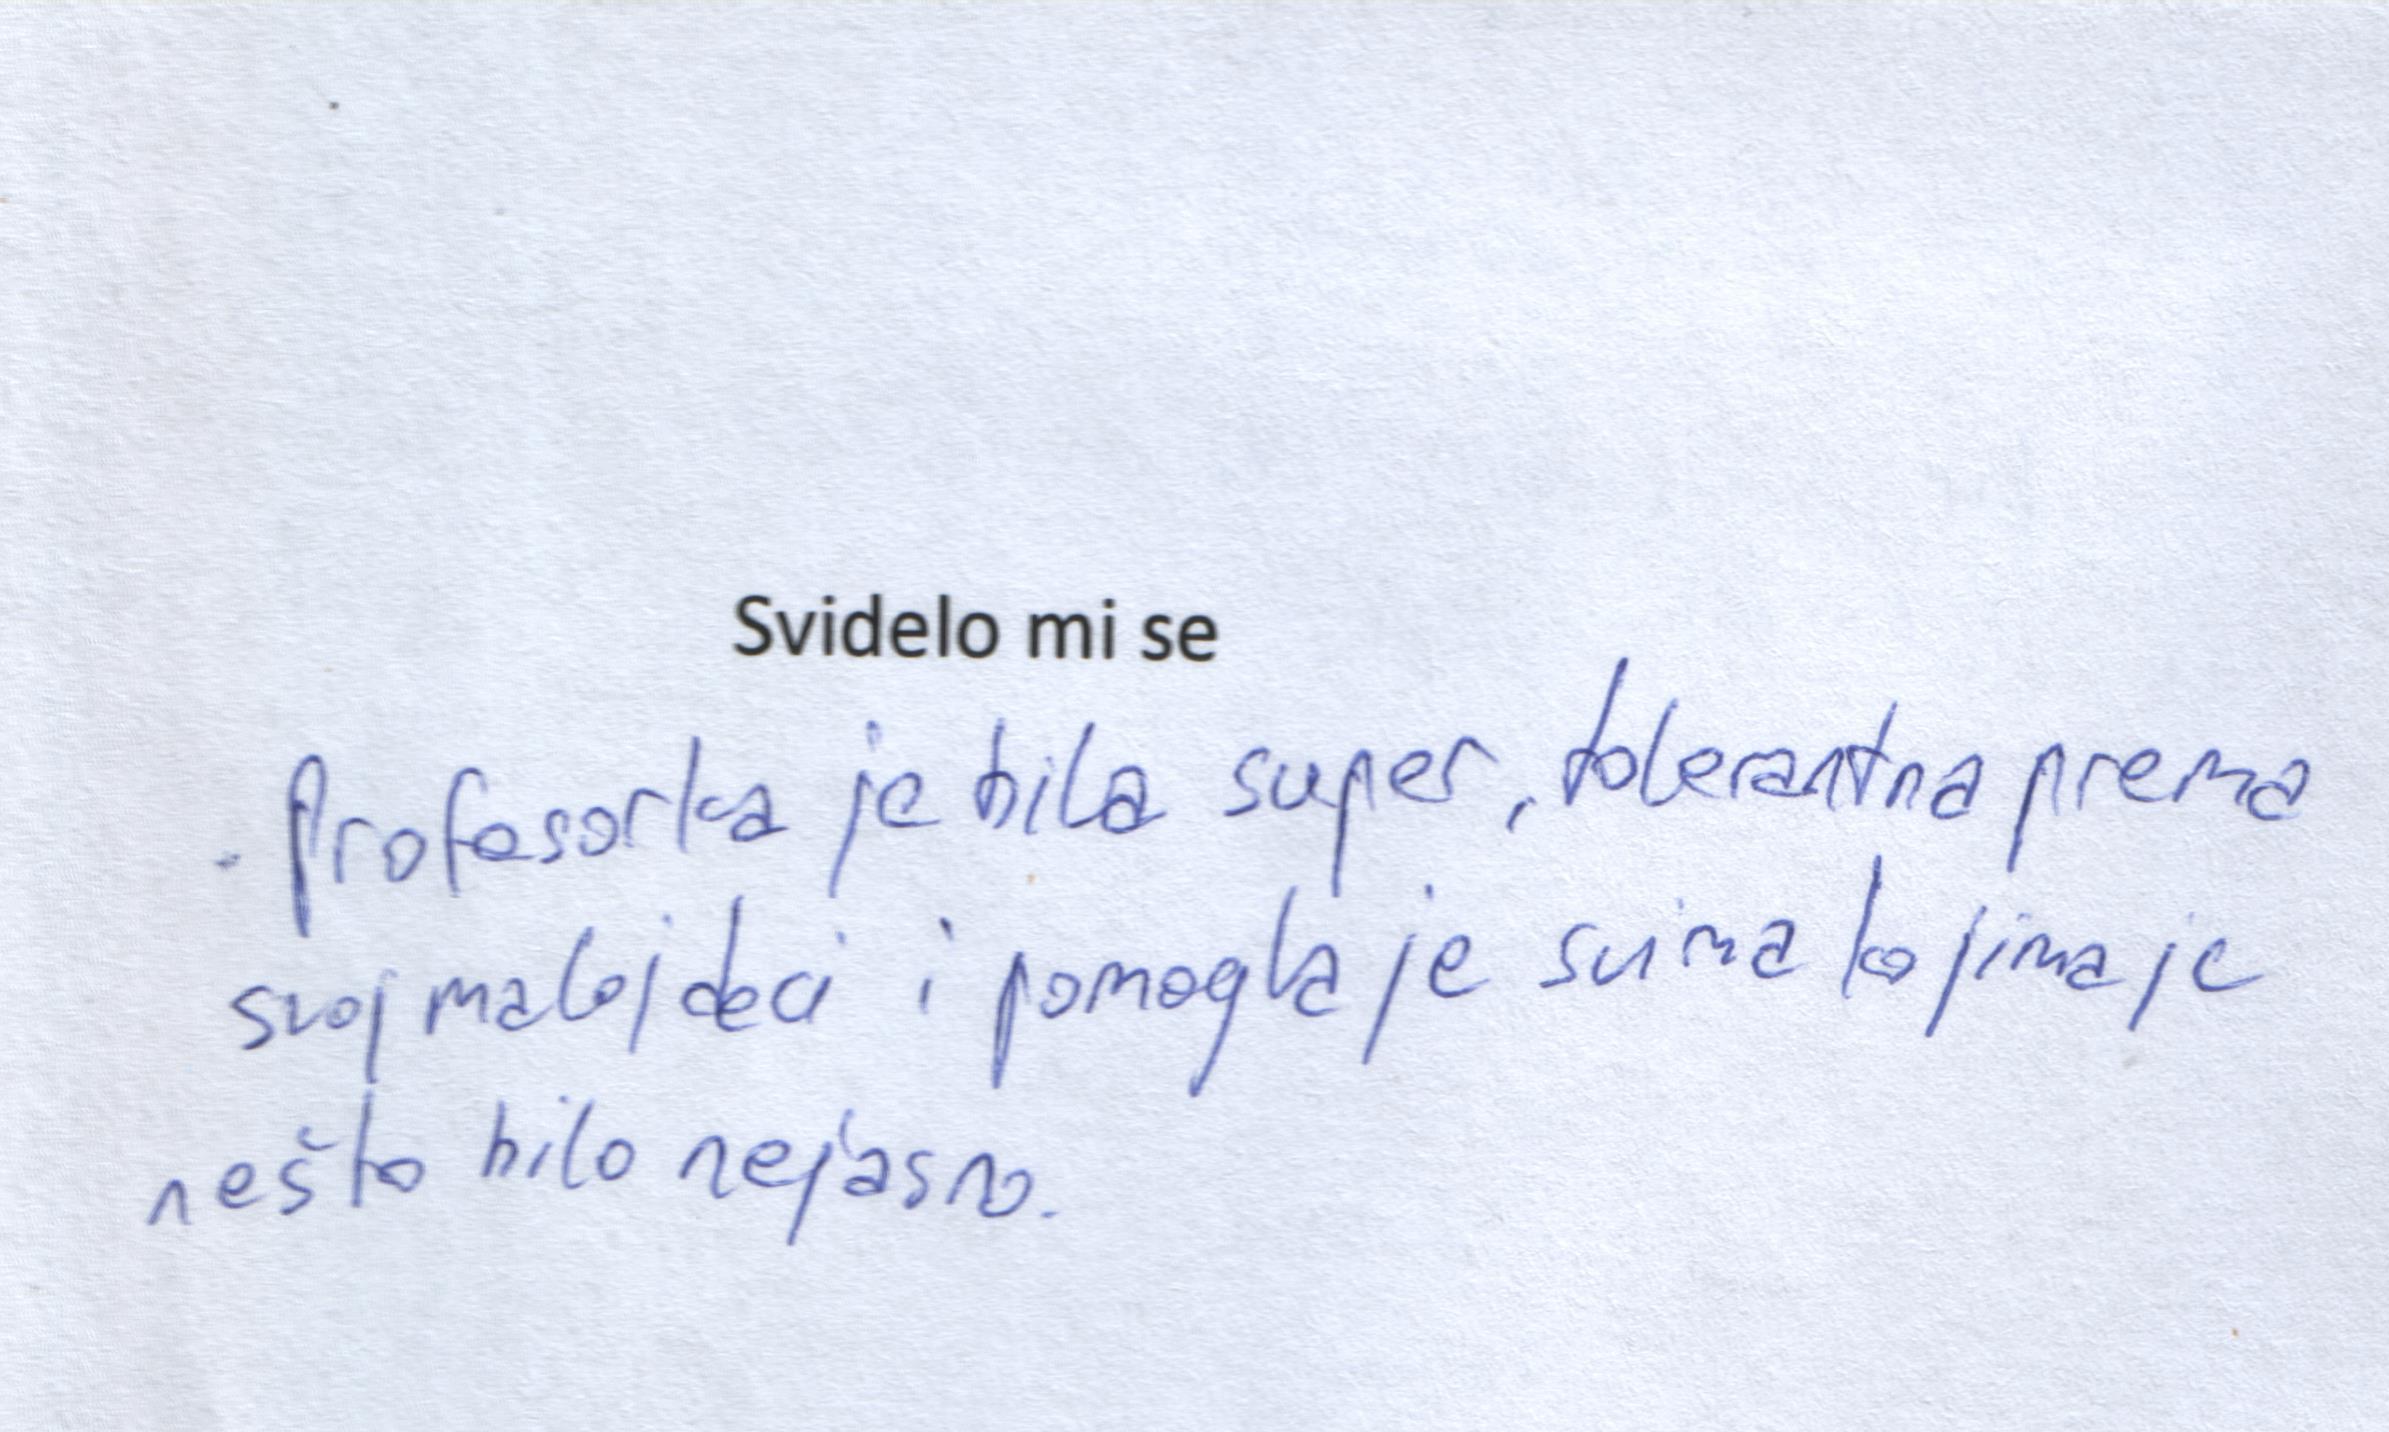 Svidelo mi se
. Profesorka je bila super, tolerantna prema
svoj maloj deci i pomogla je svima kojima je
nešto bilo nejasno.